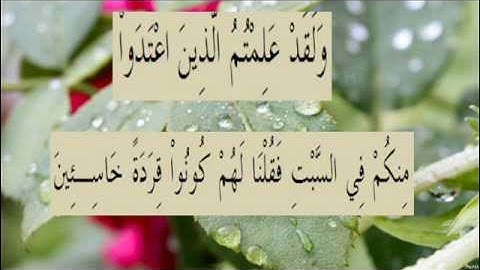 وَلَقَدْ عَلِمْتُمُ الَّذِينَ اعْتَدَواْ
مِنكُمْ فِي السَّبْتِ فَقُلْنَا لَهُمْ كُونُواْ قِرَدَةً خَاسِـــئِينَ